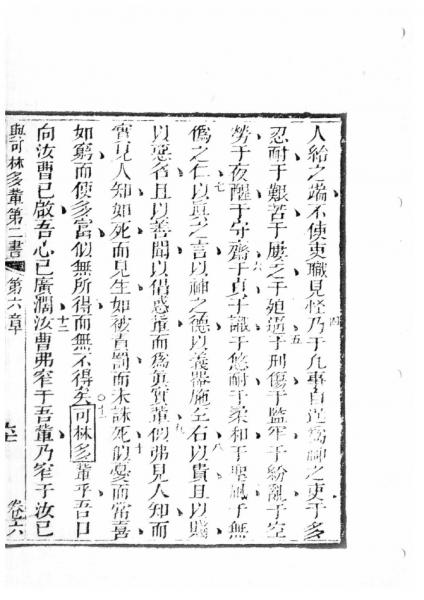 人給之端不使吏職見怪乃于凡事自逞為神之吏于多
忍耐于艱苦于屢之于殆過于刑傷于監牢于紛亂于空
勞于夜醒于守齋于貞于識于悠耐于柔和于聖風于無
偽之仁以真之言以神之德以義器施左右以貴且以賤
以惡名且以善聞以倡惑輩而為真實輩似弗見人知而
實見人知如死而見生如被責罰而未誅死似憂而常喜
如窮而使多富似無所得而無不得矣可林多輩乎吾口
向汝曹已啟吾心已廣濶汝曹弗窄于吾輩乃窄于汝已
與可林多輩第二書 第六章 卷六
四
五
六
七
八
九
十
十一
十二